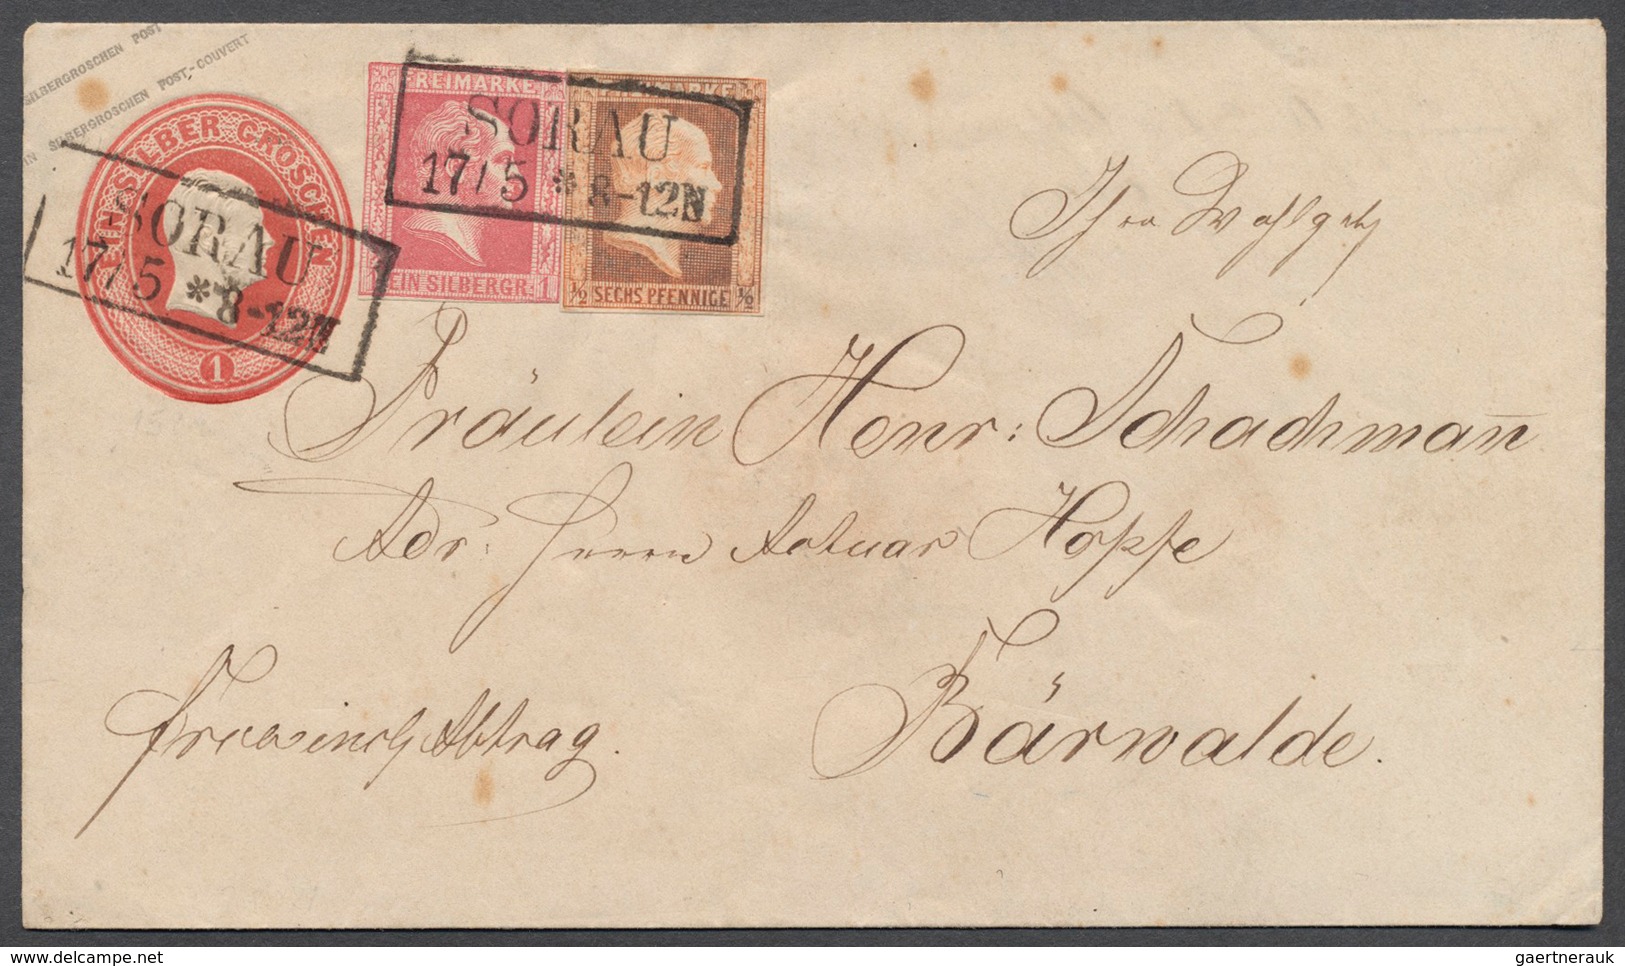 SILBERGROSCHEN POST
EIN SILBERGROSCHEN POST-COUVERT
EIN SILBER GROSCHEN
1
SORAU
17/5 * 8-12N
FREIMARKE
EIN SILBERGR. 1
FREIMARKE
½ SECHS PFENNIGE ½
SORAU
17/5 * 8-12N
Ihro Wohlgeb
Fräulein Henr: Schachmann̅
Adr: Herrn Actuar Hopfe
Bärwalde.
Abtrag.
gaertnerauk